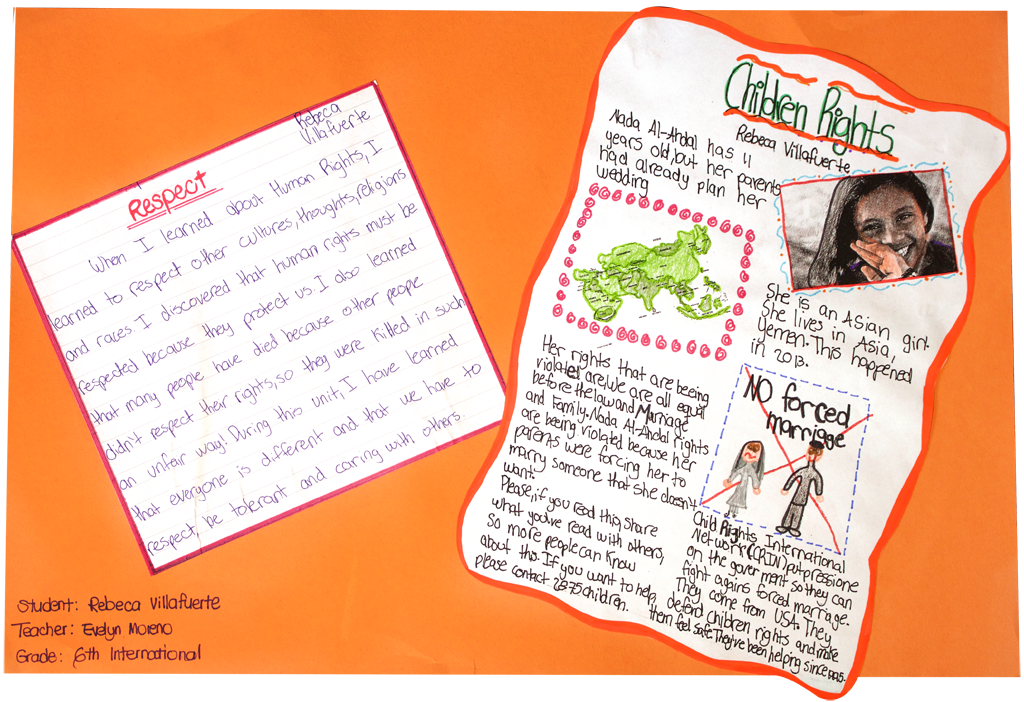 Rebeca
Villafuerte
Respect
When I learned about Human Rights, I
learned to respect other cultures, thoughts, religions
and races. I discovered that human rights must be
respected because they protect us. I also learned
that many people have died because other people
didn't respect their rights, so they were killed in such
an unfair way. During this unit, I have learned
that everyone is different and that we have to
respect, be tolerant and caring with others.
Student: Rebeca Villafuerte
Teacher: Evelyn Moreno
Grade: 6th International
Children Rights
Rebeca Villafuerte
Nada Al-Ahdal has 11
years old, but her parents
had already plan her
wedding
She is an Asian girl.
She lives in Asia,
Yemen. This happened
in 2013.
Her rights that are being
violated are, we are all equal
before the law and Marriage
and Family. Nada Al-Ahdal rights
are being violated because her
parents were forcing her to
marry someone that she doesn't
want.
Please, if you read this, share
what you've read with others,
so more people can know
about this. If you want to help,
please contact 2875children.
NO forced
marriage
Child Rights International
Network (CRIN) put pressione
on the goverment so they can
fight agains forced marriage.
They come from USA. They
defend children rights and make
them feel safe. They've been helping since